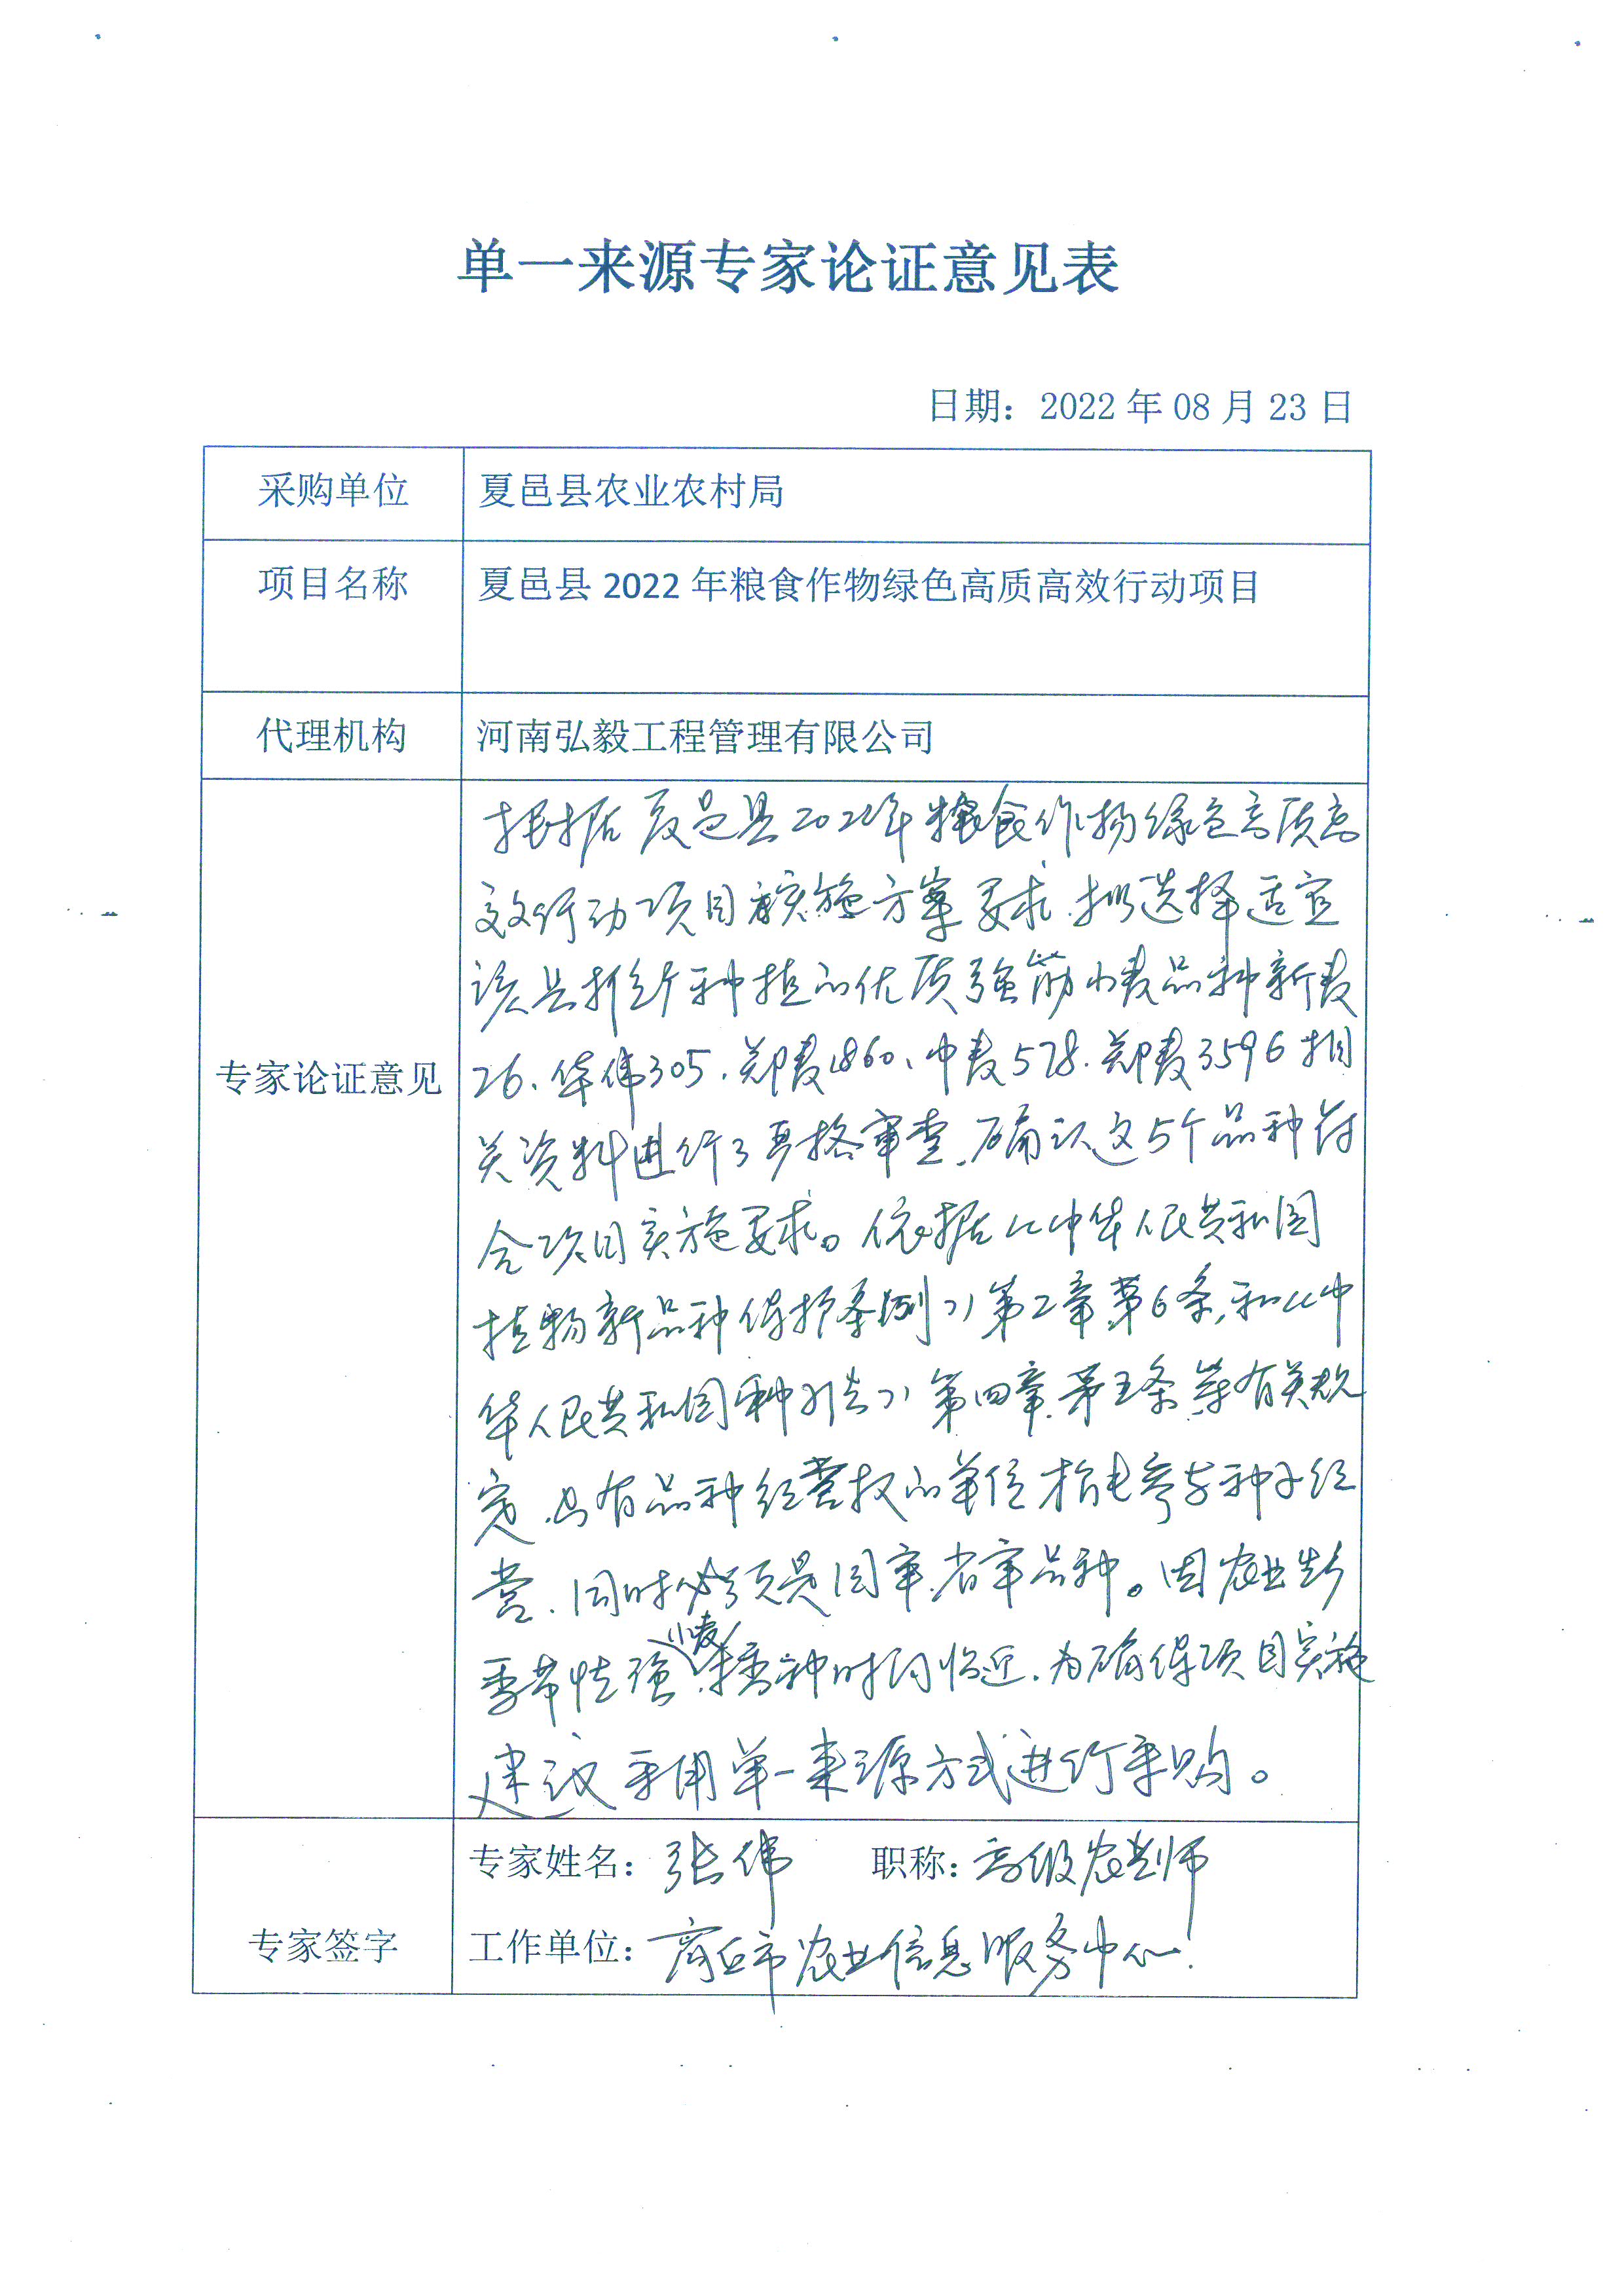 单一来源专家论证意见表
日期：2022 年 08 月 23 日
采购单位
夏邑县农业农村局
项目名称
夏邑县 2022 年粮食作物绿色高质高效行动项目
代理机构
河南弘毅工程管理有限公司
专家论证意见
根据夏邑县2022年粮食作物绿色高质高
效行动项目实施方案要求，拟选择适宜
该县推广种植的优质强筋小麦品种新麦
26、华伟305、郑麦1860、中麦578、郑麦3596相
关资料进行了严格审查，确认这5个品种符
合项目实施要求。依据《中华人民共和国
植物新品种保护条例》第2章，第6条，和《中
华人民共和国种子法》第四章，第五条等有关规
定，只有品种经营权的单位才能参与种子经
营，同时必须是国审、省审品种。因农业生产
季节性强，小麦播种时间临近，为确保项目实施
建议采用单一来源方式进行采购。
专家签字
专家姓名：张伟 职称：高级农艺师
工作单位：商丘市农业信息服务中心